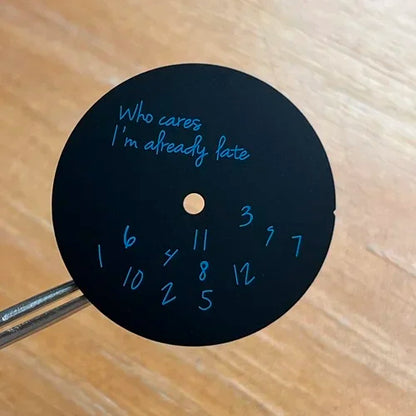 Who cares
I'm already late
3
6 11 9 7
1 4
10 8 12
2 5